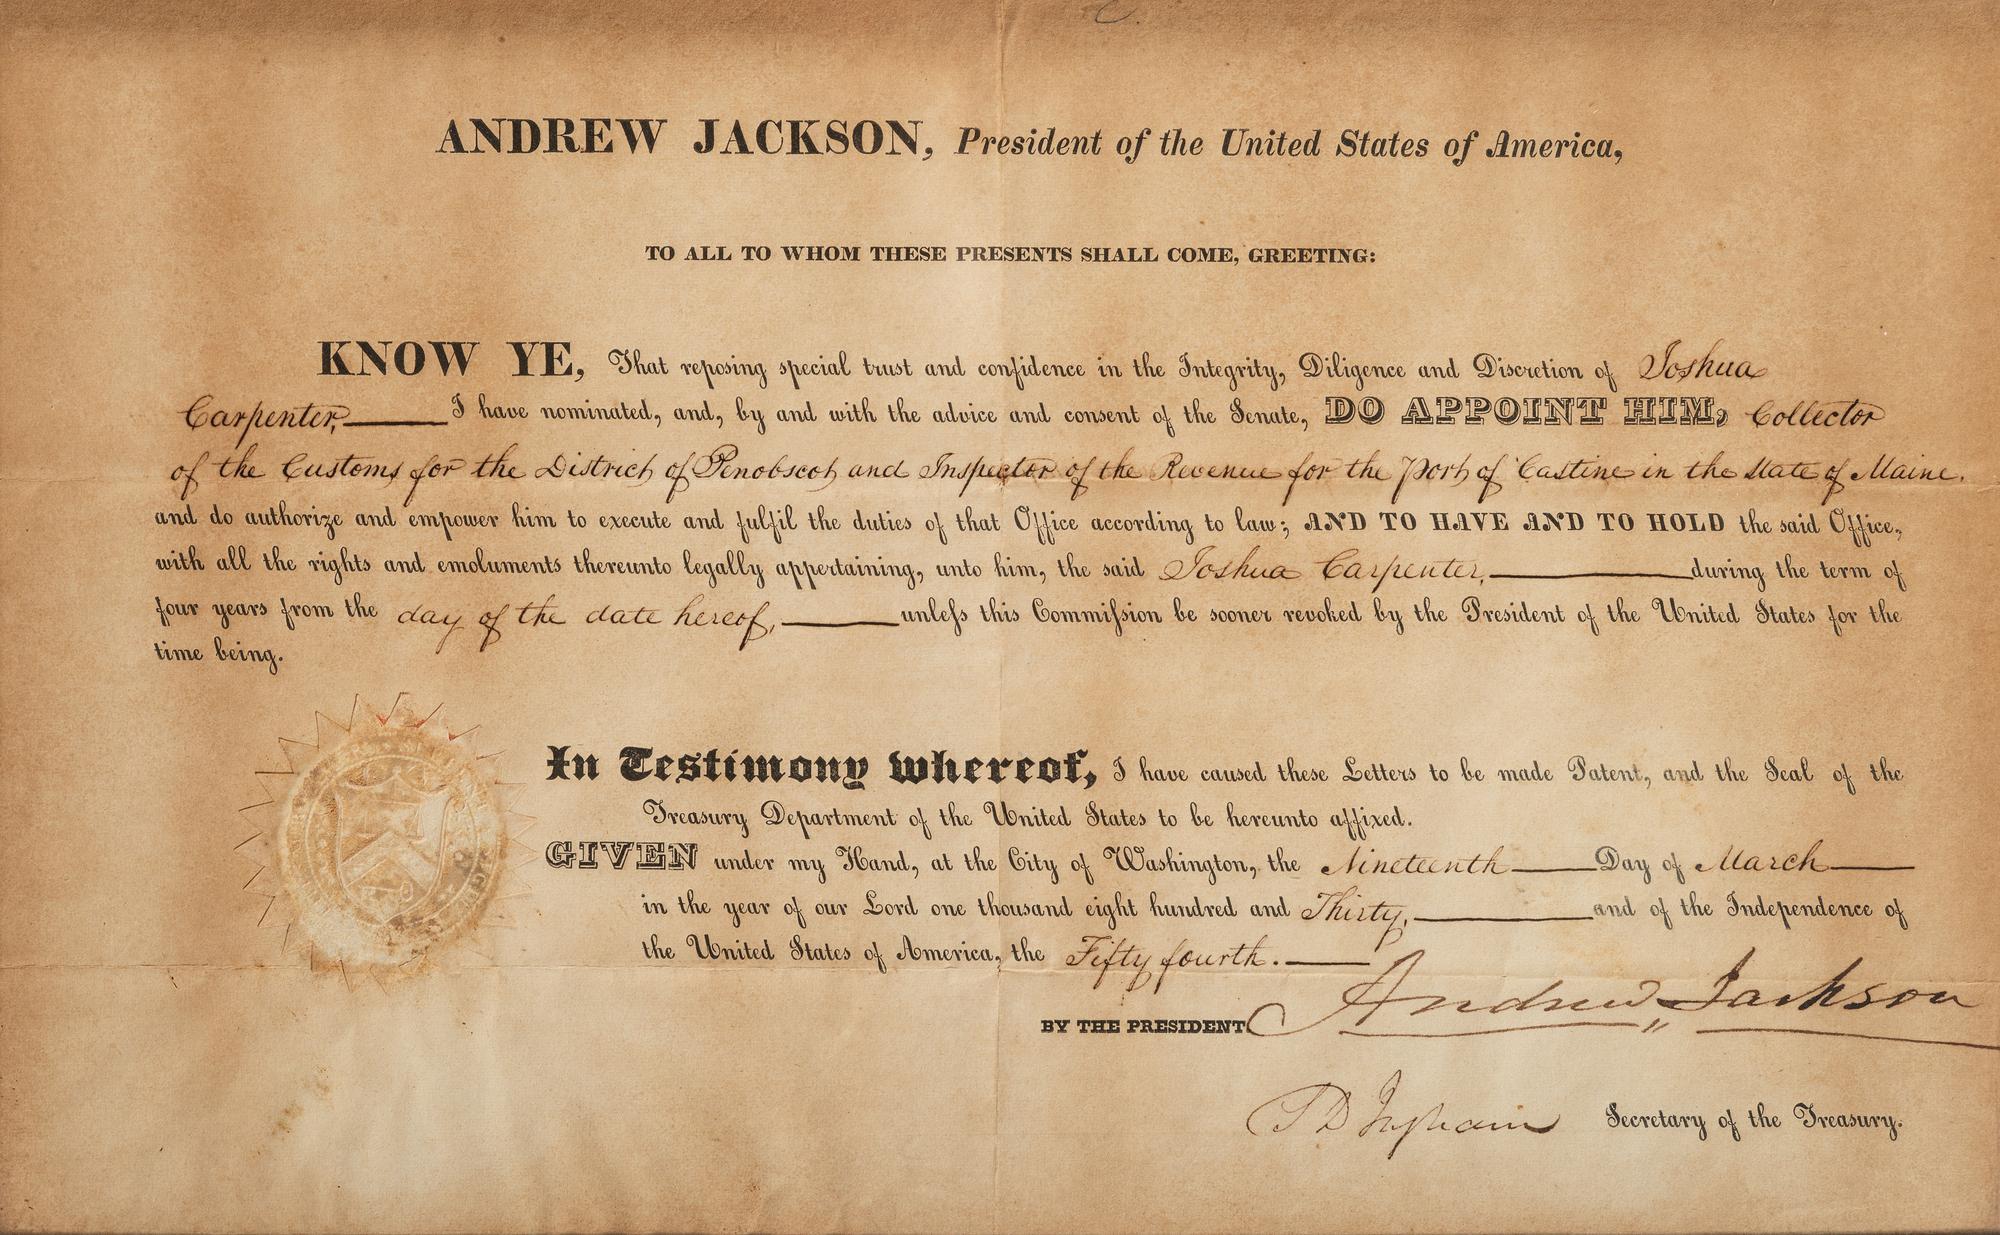 ANDREW JACKSON, President of the United States of America,
TO ALL TO WHOM THESE PRESENTS SHALL COME, GREETING:
KNOW YE, That reposing special trust and confidence in the Integrity, Diligence and Discretion of Joshua
Carpenter, I have nominated, and, by and with the advice and consent of the Senate, DO APPOINT HIM, Collector
of the Customs for the District of Penobscot and Inspector of the Revenue for the Port of Castine in the State of Maine.
and do authorize and empower him to execute and fulfil the duties of that Office according to law; AND TO HAVE AND TO HOLD the said Office,
with all the rights and emoluments thereunto legally appertaining, unto him, the said Joshua Carpenter, during the term of
four years from the day of the date hereof, unleſs this Commiſsion be sooner revoked by the President of the United States for the
time being.
In Testimony whereof, I have caused these Letters to be made Patent, and the Seal of the
Treasury Department of the United States to be hereunto affixed.
GIVEN under my Hand, at the City of Washington, the Nineteenth Day of March
in the year of our Lord one thousand eight hundred and Thirty, and of the Independence of
the United States of America, the Fifty fourth.
BY THE PRESIDENT Andrew Jackson
S D Ingham Secretary of the Treasury.